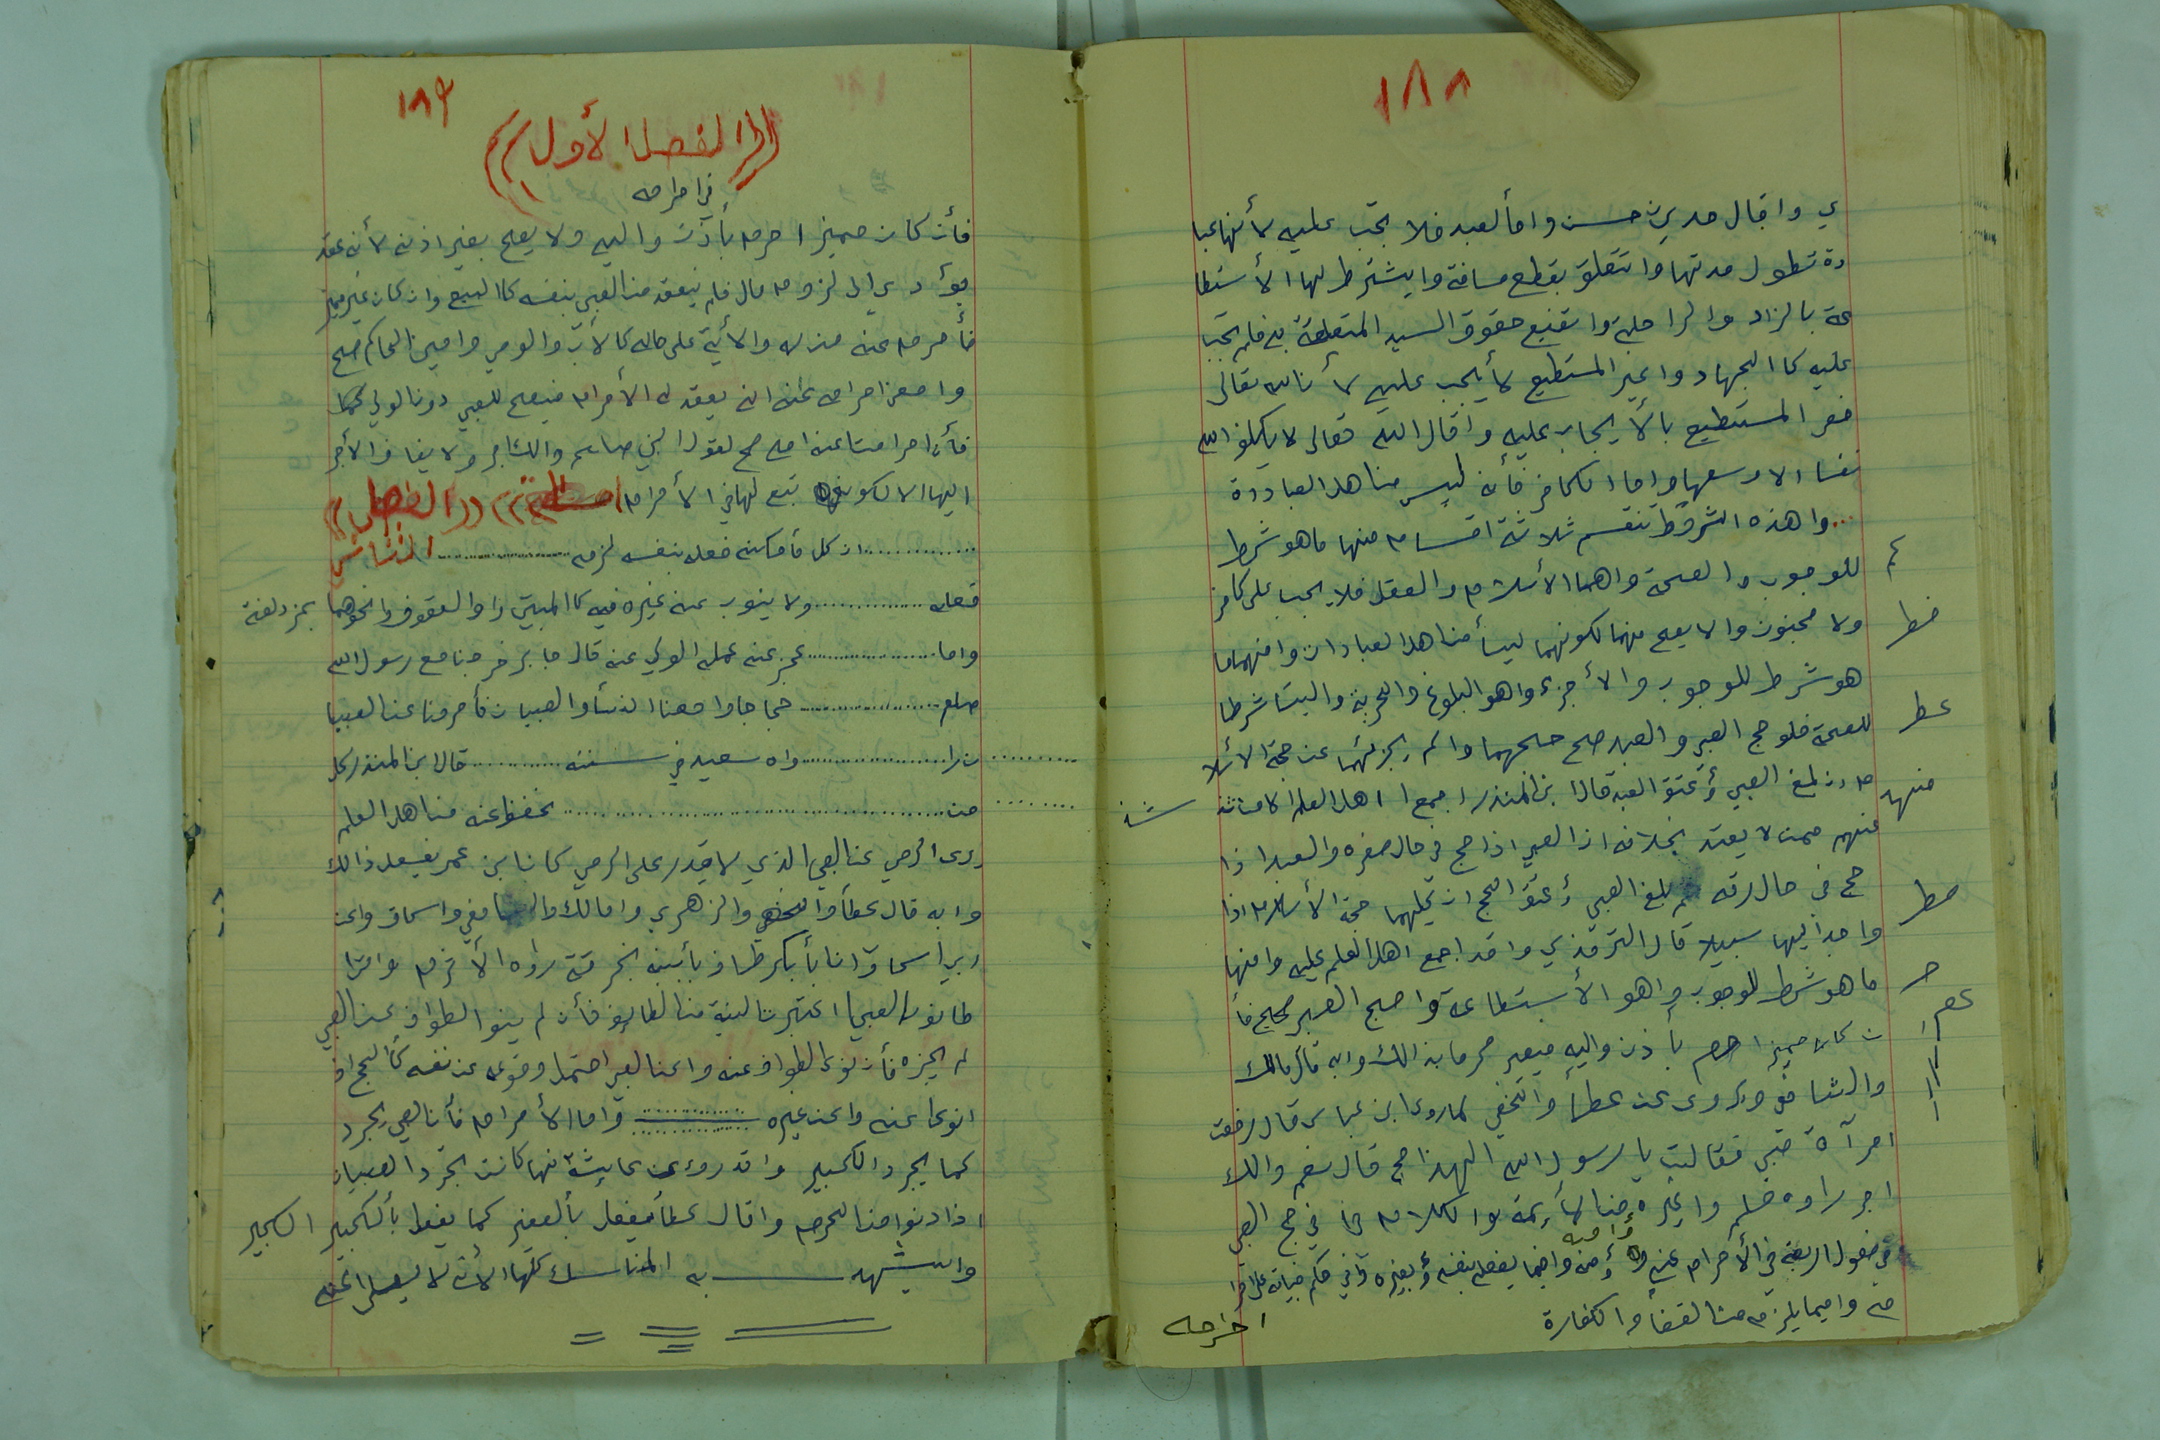 ١٨٨
ي واقال حديث حسن وامألعبد فلا تجب عليه لأنهاعبا
دة تطول مدتها واتتعلق بقطع مسافة وايشترط لها الأستطا
عة بالزاد والراحلة واتضيع حقوق السيد المتعلقة به فلم تجب
عليه كاالجهاد واغير المستطيع لأيجب عليه لأنالله تعالى
المستطيع بالأيجاب عليه واقال الله تعالى لايكلف الله
نفسا الا وسعها واما الكافر فأنه ليس مناهل العبادة
واهذه الشروط تنقسم ثلاثة اقسام منها ماهو شرط
للوجوب والصحة واهما الأسلام والعقل فلايجب على كافر
ولا مجنون والايصح منهما لكونهما ليسأ مناهل لعبادات وامنهماما
هو شرط للوجوب والأجزء واهو البلوغ والحرية واليسا شرطا
للصحة فلو حج الصبي والعبد صح حجهما والم يجزئهما عن حجة الأسلا
م ان بلغ الصبي أوعتق العبد قال ابن المنذر اجمع اهل العلم الامنشذ
منهم ممن لايعتد بخلافه ان الصبي اذا حج في حال صغره والعبد اذا
حج في حال رقه ثم بلغ الصبي أوعتق العبد ان عليهما حجة الأسلام اذا
واجدا ليها سبيلا قال الترمذي واقد اجمع اهل العلم عليه وامنها
ماهو شرط للوجوب واهو الأستطاعة واحج الصبي صحيح فأ
ن كان مميزا احرم بأذن واليه فيصير محرما بذالك وابه قال مالك
والشافعي ويروى عن عطأ والنخعي لماروى ابن عباس قال رفعت
امرأة صبي فقالت يارسول الله الهذا حج قال نعم والك
اجر راوه مسلم واغيره منالأيمة والكلام في حج الصبي
في فصول اربعة في الأحرام عنه أو منه وافيما يفعله بنفسه أوبغيره وافي حكم جناياته على احرا
مه وافيما يلزمه منالقضأ والكفارة
احرامه
١٨٩
((الفصل الأول))
في احرامه
فأن كان مميزا احرم بأذن واليه ولا يصح بغير اذنه لأنه عقد
يؤدي الى لزوم مال فلم ينعقد منالصبي بنفسه كاالبيع وان كان غيرمميز
فأحرم عنه منله والأية على ماله كالأب والوصي وامين الحاكم صح
وامعنى احرامه عنه انه يعقد له الأحرام فيصح للصبي دونالولي كما
فأن احرمت عنه امه صح لقول النبي صلعم والك اجر ولا يضاف الأجر
اليها الا لكونه تبع لها في الأحرام ((الفصل))
............ ان كل ماامكنه فعله بنفسه لزمه ............ الثاني
فعله ............ ولا ينوب عنه غيره فيه كاالمبيت واالوقوف وانحوهما بمزدلفة
واما ............ عجز عنه عمله الولي عنه قال جابر خرجنا مع رسول الله
صلعم ............ حجاجا وامعنا النسأ والصبيان فأحرمنا عن الصبيا
ن را ............ واه سعيد في سننه ............ قال ابن المنذر كل
من ............ نحفظ عنه مناهل العلم
يرى الرمي عنالصبي الذي لايقدر على الرمي كانابن عمر يفعل ذالك
وابه قال عطأ والزهري وامالك والشافعي واسحاق واعن
ابي اسحاق انا بأبكر طاف بأبنه في خرقة راوه الأثرم وامتا
طافو بالصبي اعتبرت النية من الطائف فأن لم ينو الطواف عن الصبي
لم يجزه فأن نوى الطواف عنه واعنالصبي احتمل وقوعه عن نفسه كاالحج اذ
انوى عنه واعن غيره ............ واما الأحرام فأنالصبي يجرد
كما يجرد الكبير واقد روي عن عايشة انها كانت تجرد الصبيان
اذا دنوا منالحرم واقال عطأ يفعل بألصغير كما يفعل بألكبير الكبير
وايشهد به المناسك كلها الأنه لايصلى عنه